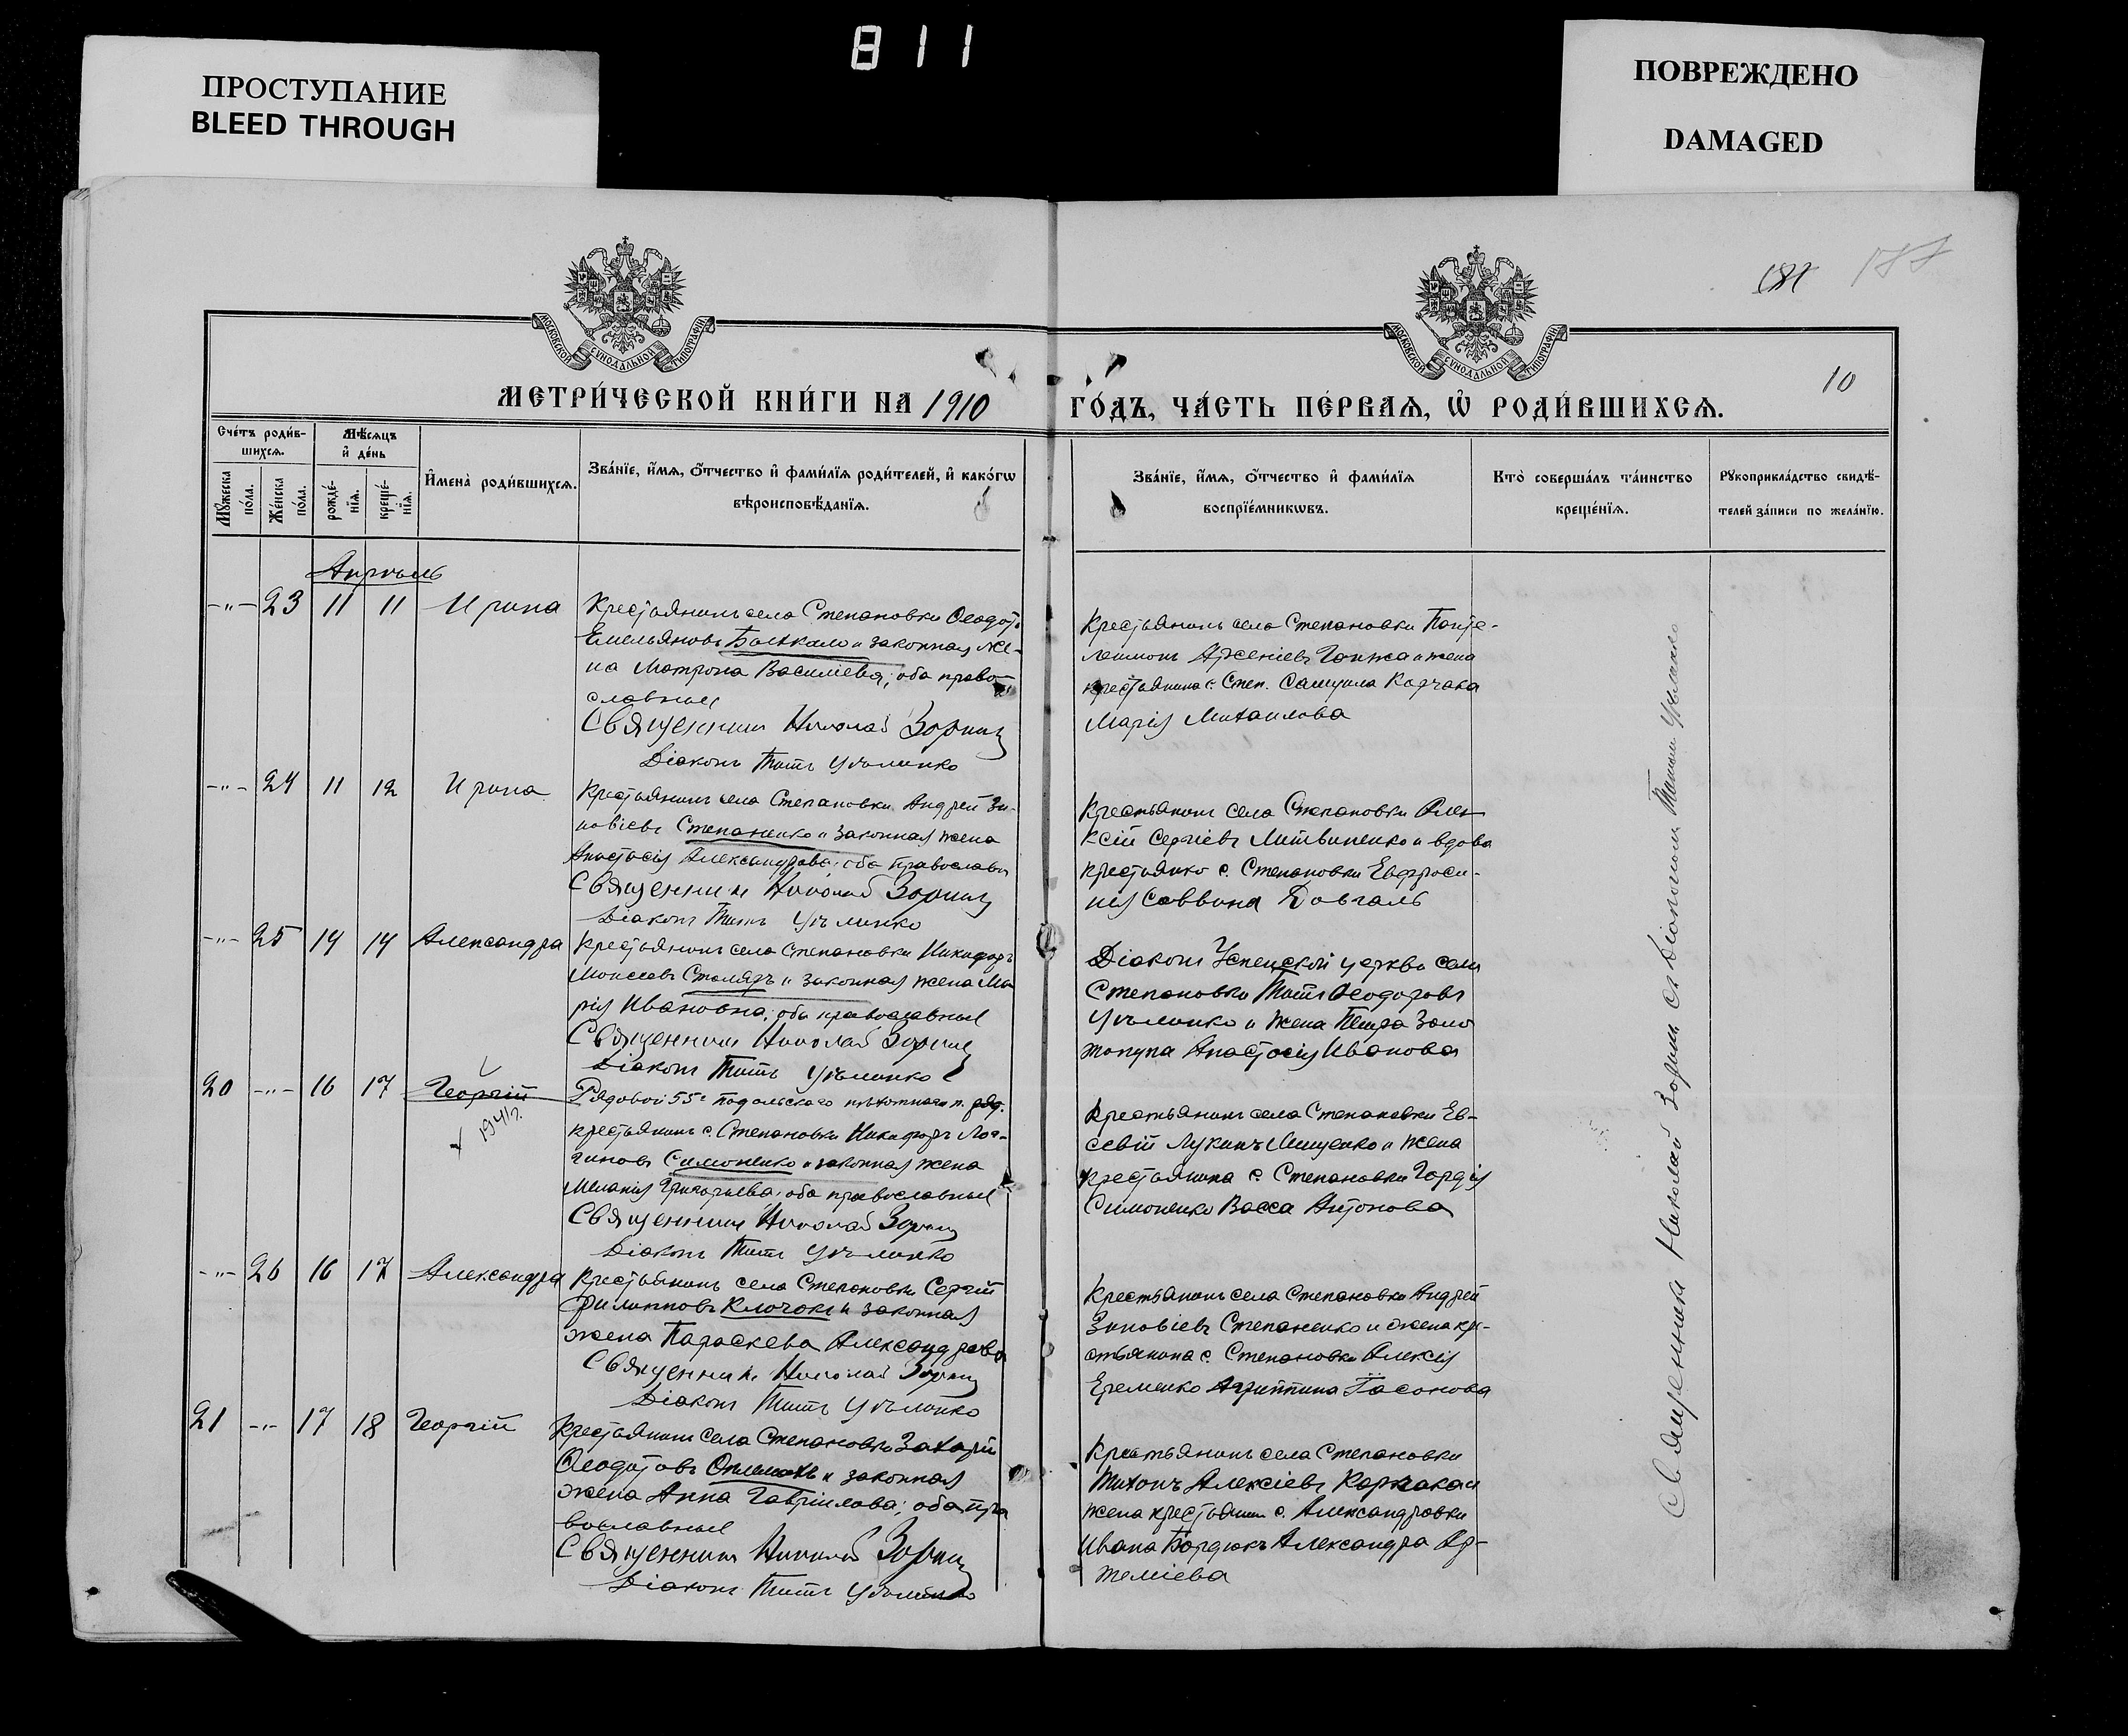 811
ПРОСТУПАНИЕ
BLEED THROUGH
ПОВРЕЖДЕНО
DAMAGED
МОСКОВСКОЙ СѴНОДАЛЬНОЙ ТИПОГРАФІИ
МОСКОВСКОЙ СѴНОДАЛЬНОЙ ТИПОГРАФІИ
188
10
МЕТРИ́ЧЕСКОЙ КНИ́ГИ НА 1910 ГО́ДЪ, ЧА́СТЬ ПЕ́РВАѦ, Ѿ РОДИ́ВШИХСѦ.
Сче́тъ роди́в-
шихсѧ.
Мꙋжеска по́ла.
Же́нска по́ла.
Мѣ́сѧцъ и҆ де́нь
рожде́-
нїѧ.
креще́-
нїѧ.
И҆мена̀ роди́вшихсѧ.
Зва́нїе, и҆́мѧ, о҆́тчество и҆ фами́лїѧ роди́телей, и҆ како́гѡ
вѣроисповѣ́данїѧ.
Зва́нїе, и҆́мѧ, о҆́тчество и҆ фами́лїѧ
воспрїе́мникѡвъ.
Кто̀ соверша́лъ та́инство
креще́нїѧ.
Рꙋкоприкла́дство свидѣ́-
телей за́писи по жела́нїю.
Апрѣль
-"- 23 11 11 Ирина
Крестьянинъ села Степановки Ѳеодотъ
Емельяновъ и законная же-
на Матрона Василіева; оба право-
славные
Священникъ Николай Зоринъ
Діаконъ Титъ
Крестьянинъ села Степановки Панте-
леимонъ Арсеніевъ Ганжа и жена
крестьянина с. Степ. Самуила Корчака
Марія Михаилова
-"- 24 11 12 Ирина
Крестьянинъ села Степановки Андрей Зи-
новіевъ Степаненко и законная жена
Анастасія Александрова; оба православн
Священникъ Николай Зоринъ
Діаконъ Титъ
Крестьянинъ села Степановки Алек-
ксій Сергіевъ Литвиненко и вдова
крестьянка с. Степановки Евфроси-
нія Саввина Довгаль
-"- 25 14 14 Александра
Крестьянинъ села Степановки Никифоръ
Моисеевъ Столяръ и законная жена Ма
рія Ивановна; оба православные
Священникъ Николай Зоринъ
Діаконъ Титъ
Діаконъ Успенской церкви села
Степановки Титъ Ѳеодоровъ
и жена Петра Золо
Анастасія Иванова
20 -"- 16 17 Георгій
1941 г.
Рядовой 55го Подольскаго пѣхотнаго п.
крестьянинъ с. Степановки Никифоръ Лон-
гиновъ Симоненко и законная жена
Меланія Григорьева; оба православные
Священникъ Николай Зоринъ
Діаконъ Титъ
Крестьянинъ села Степановки Ев-
севій Лукинъ Ищенко и жена
крестьянина с. Степановки Гордія
Симоненко Васса Антонова
-"- 26 16 17 Александра
Крестьянинъ села Степановки Сергій
Филипповъ Клочокъ и законная
жена Параскева Александрова
Священникъ Николай Зоринъ
Діаконъ Титъ
Крестьянинъ села Степановки Андрей
Зиновіевъ Степаненко и жена кре-
стьянина с. Степановки Алексія
Еременко Агриппина Іасонова
21 -"- 17 18 Георгій
Крестьянинъ села Степановки Захарій
Ѳеодотовъ и законная
жена Анна Гавріилова; оба пра
вославные
Священникъ Николай Зоринъ
Діаконъ Титъ
Крестьянинъ села Степановки
Тихонъ Алексіевъ Корчака и
жена крестьянина с. Александровки
Ивана Бордюкъ Александра Ар-
теміева
Священникъ Николай Зоринъ съ Діакономъ Титомъ